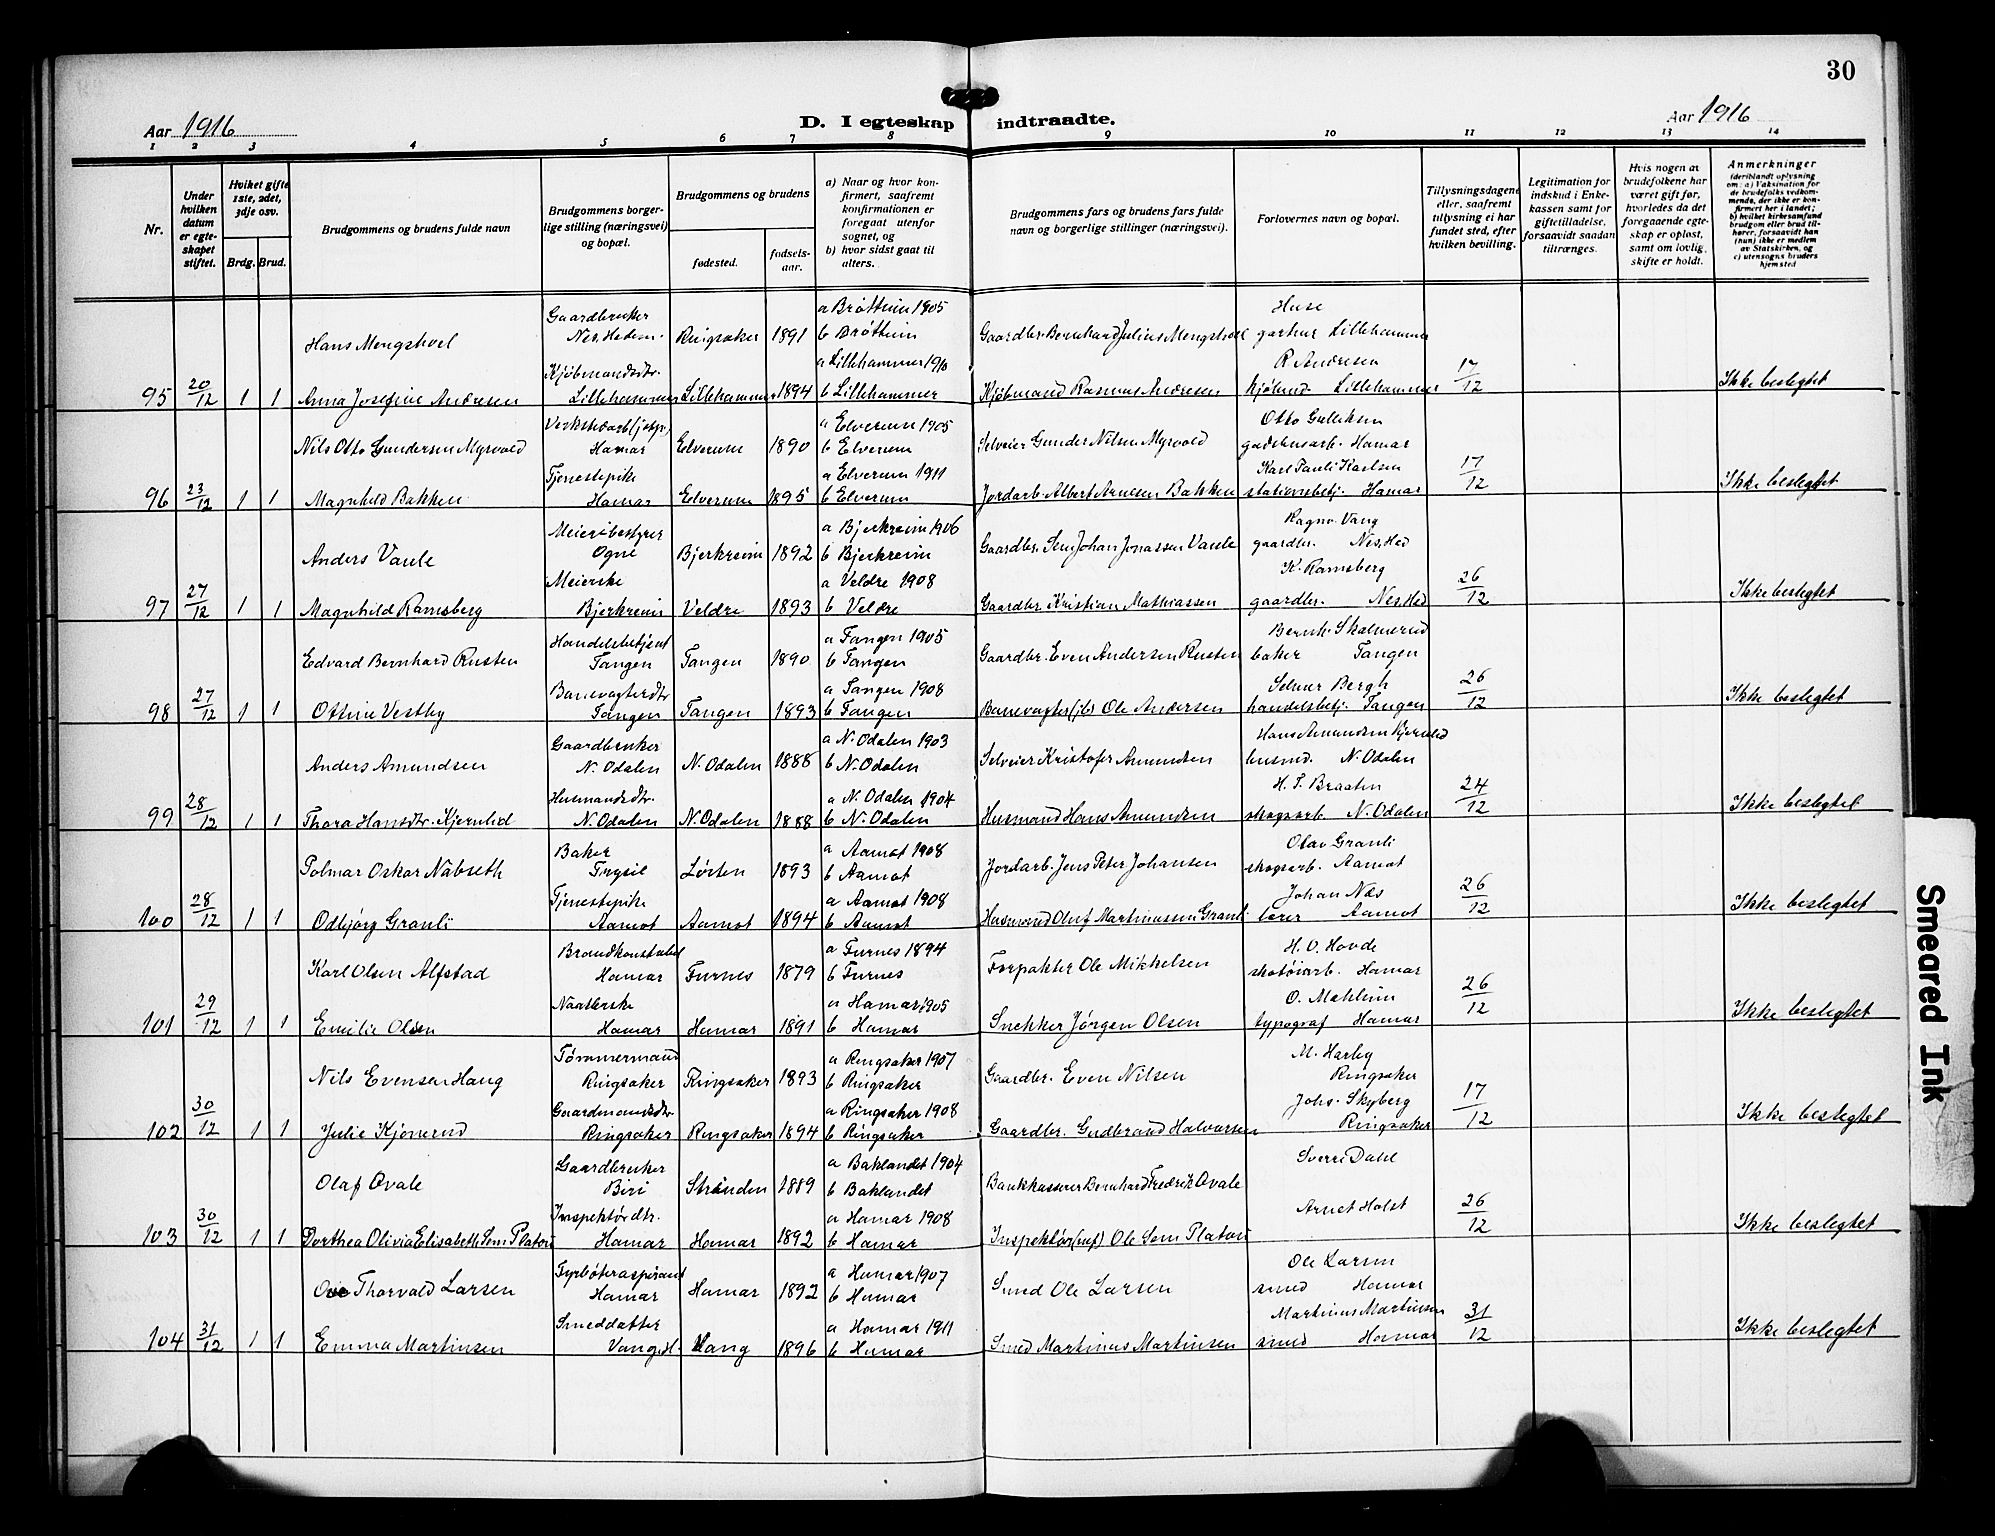 30
Aar 1916
D. I egteskap indtraadte.
Aar 1916
1 2 3 4 5 6 7 8 9 10 11 12 13 14
Nr.
Under hvilken datum er egteskapet stiftet.
Hvilket gifte 1ste, 2det, 3dje osv.
Brdg. Brud.
Brudgommens og brudens fulde navn
Brudgommens borgerlige stilling (næringsvei) og bopæl.
Brudgommens og brudens
fødested.
fødselsaar.
a) Naar og hvor konfirmert, saafremt konfirmationen er foregaat utenfor sognet, og
b) hvor sidst gaat til alters.
Brudgommens fars og brudens fars fulde navn og borgerlige stillinger (næringsvei).
Forlovernes navn og bopæl.
Tillysningsdagene eller, saafremt tillysning ei har fundet sted, efter hvilken bevilling.
Legitimation for indskud i Enkekassen samt for giftetilladelse, forsaavidt saadan tiltrænges.
Hvis nogen av brudefolkene har været gift før, hvorledes da det foregaaende egteskap er opløst, samt om lovlig skifte er holdt.
Anmerkninger (deriblandt oplysning om: a) Vaksination for de brudefolks vedkommende, der ikke er konfirmert her i landet; b) hvilket kirkesamfund brudgom eller brud tilhører, forsaavidt han (hun) ikke er medlem av Statskirken, og c) utensogns bruders hjemsted
Hans Mengshoel Gaardbruker Nes, Hedem. Ringsaker 1891 a Brøttum 1905 b Brøttum Gaardbr. Bernhard Julius Mengshoel Huse gartner Lillehammer
95 20/12 1 1 Anna Josefine Andresen Kjøbmandsdtr. Lillehammer Lillehammer 1894 a Lillehammer 1910 b Lillehammer Kjøbmand Rasmus Andresen R Andresen kjøbmd. Lillehammer 17/12 Ikke beslegtet
Nils Otto Gundersen Myrvold Hamar Elverum 1890 a Elverum 1905 b Elverum Selveier Gunder Nilsen Myrvold Otto Gulliksen Hamar
96 23/12 1 1 Magnhild Bakken Tjenestepike Hamar Elverum 1895 a Elverum 1911 b Elverum Jordarb. Albert Arnesen Bakken Karl Pauli Karlsen stationsbetj. Hamar 17/12 Ikke beslegtet
Anders Vaule Meieribestyrer Ogne Bjerkreim 1892 a Bjerkreim 1906 b Bjerkreim Gaardbr. Johan Jonassen Vaule Ragnv. Vang gaardbr. Nes, Hed
97 27/12 1 1 Magnhild Ramsberg Meierske Bjerkreim Veldre 1893 a Veldre 1908 b Veldre Gaardbr. Kristian Mathiassen K. Ramsberg gaardbr. Nes, Hed 26/12 Ikke beslegtet
Edvard Bernhard Rusten Handelsbetjent Tangen Tangen 1890 a Tangen 1905 b Tangen Gaardbr. Even Andersen Rusten Bernh. Skalmerud baker Tangen
98 27/12 1 1 Othine Vestby Banevogterdtr Tangen Tangen 1893 a Tangen 1908 b Tangen Banevogter Ole Andersen Selmer Bergh handelsbetj. Tangen 26/12 Ikke beslegtet
Anders Amundsen Gaardbruker N. Odalen N. Odalen 1888 a N. Odalen 1903 b N. Odalen Selveier Kristofer Amundsen Hans Amundsen Kjernlid husmd. N. Odalen
99 28/12 1 1 Thora Hansdtr. Kjernlid Husmandsdtr. N. Odalen N. Odalen 1888 a N. Odalen 1904 b N. Odalen Husmand Hans Amundsen H. T. Braaten skogsarb. N. Odalen 24/12 Ikke beslegtet
Polmar Oskar Nabseth Baker Trysil Løiten 1893 a Aamot 1908 b Aamot Jordarb. Jens Peter Johansen Olav Granli skogsarb. Aamot
100 28/12 1 1 Odbjørg Granli Tjenestepike Aamot Aamot 1894 a Aamot 1908 b Aamot Husmand Oluf Martinussen Granli Johan Næs lærer Aamot 26/12 Ikke beslegtet
Karl Olsen Alfstad Brandkonstabel Hamar Furnes 1879 a Furnes 1894 b Furnes Forpakter Ole Mikkelsen H. O. Hovde skotøiarb. Hamar
101 29/12 1 1 Emilie Olsen Naatlerske Hamar Hamar 1891 a Hamar 1905 b Hamar Snekker Jørgen Olsen O. Mæhlum typograf Hamar 26/12 Ikke beslegtet
Nils Evensen Haug Tømmermand Ringsaker Ringsaker 1893 a Ringsaker 1907 b Ringsaker Gaardbr. Even Nilsen M. Harby Ringsaker
102 30/12 1 1 Julie Kjønerud Gaardmandsdtr Ringsaker Ringsaker 1894 a Ringsaker 1908 b Ringsaker Gaardbr. Gudbrand Halvorsen Johs. Skyberg Ringsaker 17/12 Ikke beslegtet
Olaf Qvale Gaardbruker Biri Strinden 1889 a Baklandet 1904 b Baklandet Bankkasserer Bernhard Fredrik Qvale Sverre Dahl
103 30/12 1 1 Dorthea Olivia Elisabeth Sem Platou Inspektørdtr. Hamar Hamar 1892 a Hamar 1908 b Hamar Inspektør Ole Sem Platou Arnet Holst 26/12 Ikke beslegtet
Thorvald Larsen Fyrbøteraspirant Hamar Hamar 1892 a Hamar 1907 b Hamar Smed Ole Larsen Ole Larsen smed Hamar
104 31/12 1 1 Emma Martinsen Smeddatter Vang, H. Vang 1896 a Hamar 1911 b Hamar Smed Martinus Martinsen Martinus Martinsen smed Hamar 31/12 Ikke beslegtet
Smeared Ink